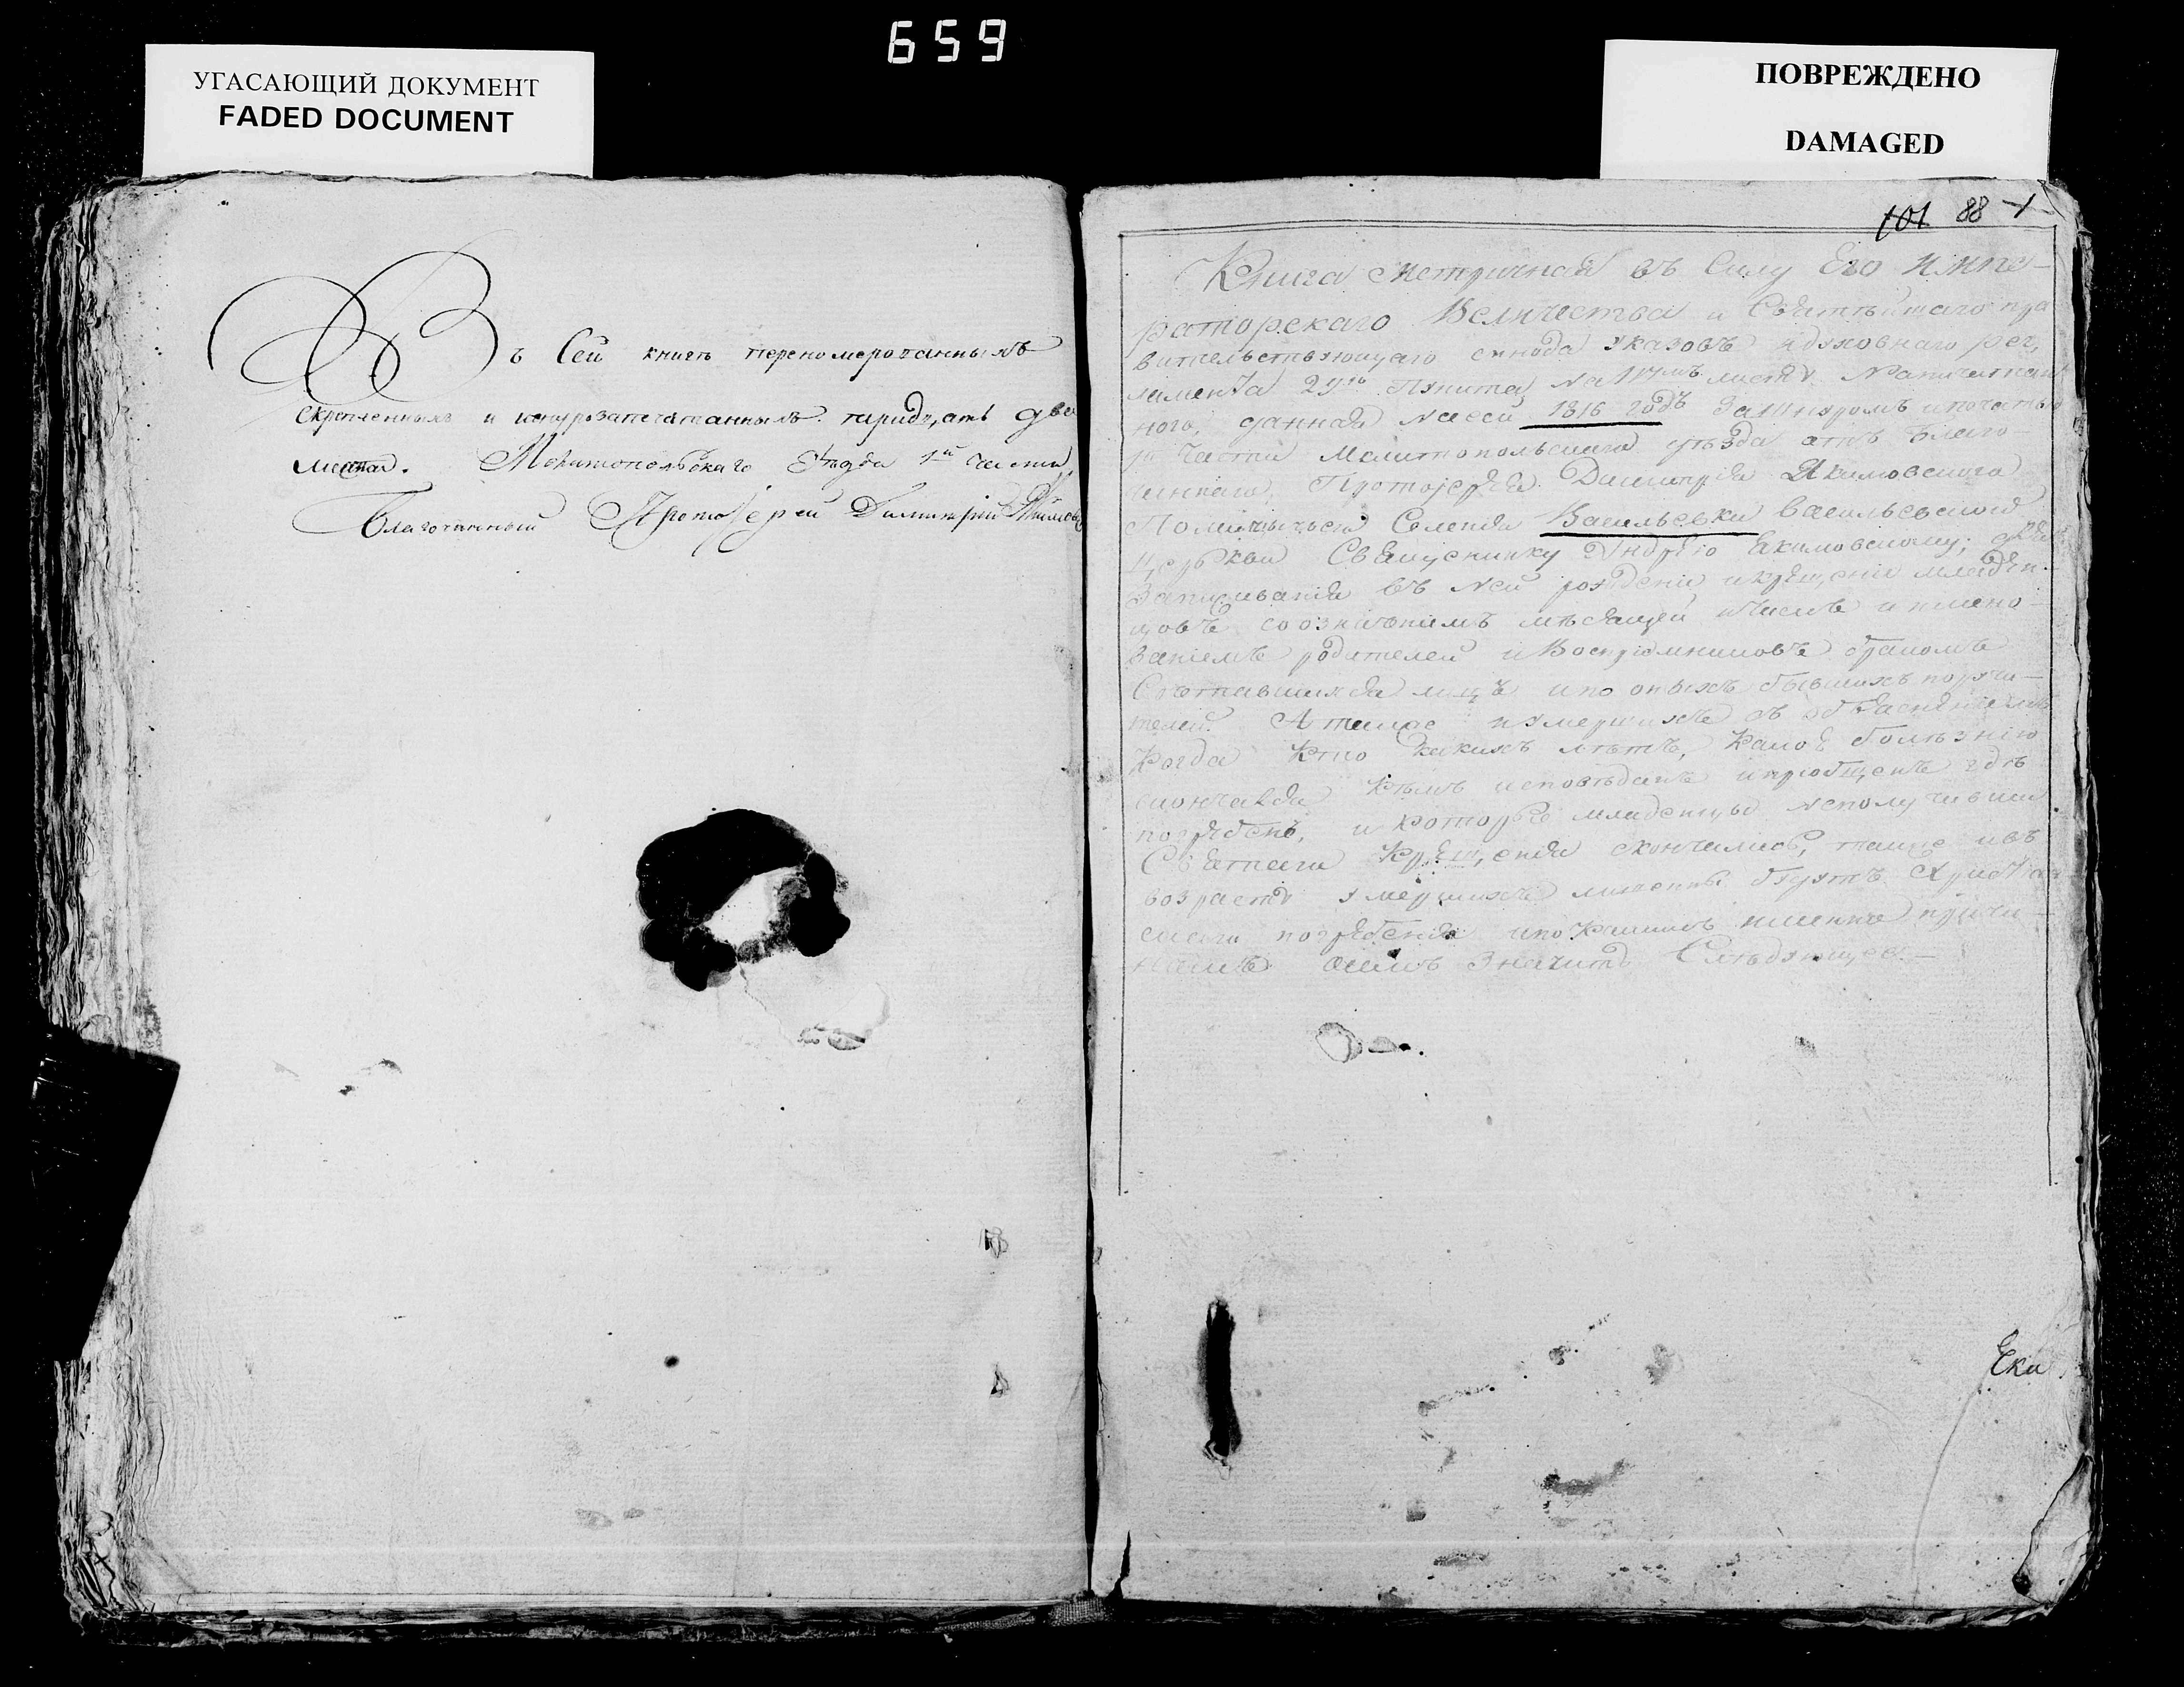 659
УГАСАЮЩИЙ ДОКУМЕНТ
FADED DOCUMENT
ПОВРЕЖДЕНО
DAMAGED
Въ Сей книгѣ переномерованныхъ
скрепленныхъ и шнурозапечатанныхъ тридцать два
листа. Мелитопольскаго уѣзда 1й части,
Благочинный Протоіерей Димитрій
101 88 1
Книга метричная въ Силу Его Импе-
раторскаго Величества и Святѣйшаго пра
вительствующаго синода указовъ и духовнаго рег,
ламента 29го Пункта, на листу Напечатан
ного, данная на сей 1816 годъ За шнуромъ и печатью
1й Части Мелитопольскаго уѣзда отъ Благо-
чиннаго, Протоіерея Димитрія Якимовскаго
Селенія Васильевки Васильевской
Церькви Священнику Андрею Якимовскому; для
Записыванія въ ней рожденія и крещенія младен-
цовъ со означеніемъ мѣсяцей и числъ и имено-
ваніемъ родителей и Воспріемниковъ бракомъ
Сочетавшихся лицъ и по оныхъ бывшихъ поручи-
телей. А также и умершихъ съ объясненіемъ
Когда Кто какихъ лѣтъ, Какою болѣзнію
скончался Кѣмъ исповѣданъ и пріобщенъ гдѣ
погребенъ, и которые младенцы неполучивши
Святаго Крещенія скончались, также и въ
возрастѣ умершихъ лишены будутъ Христіан
скаго погребенія и по какимъ имянно причи-
намъ о семъ Значитъ Слѣдующее.—
Ека